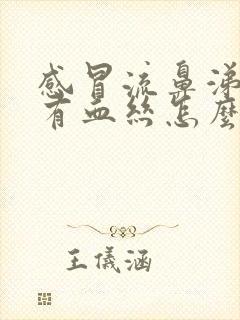 感冒流鼻涕
有血丝怎麽
王儀涵